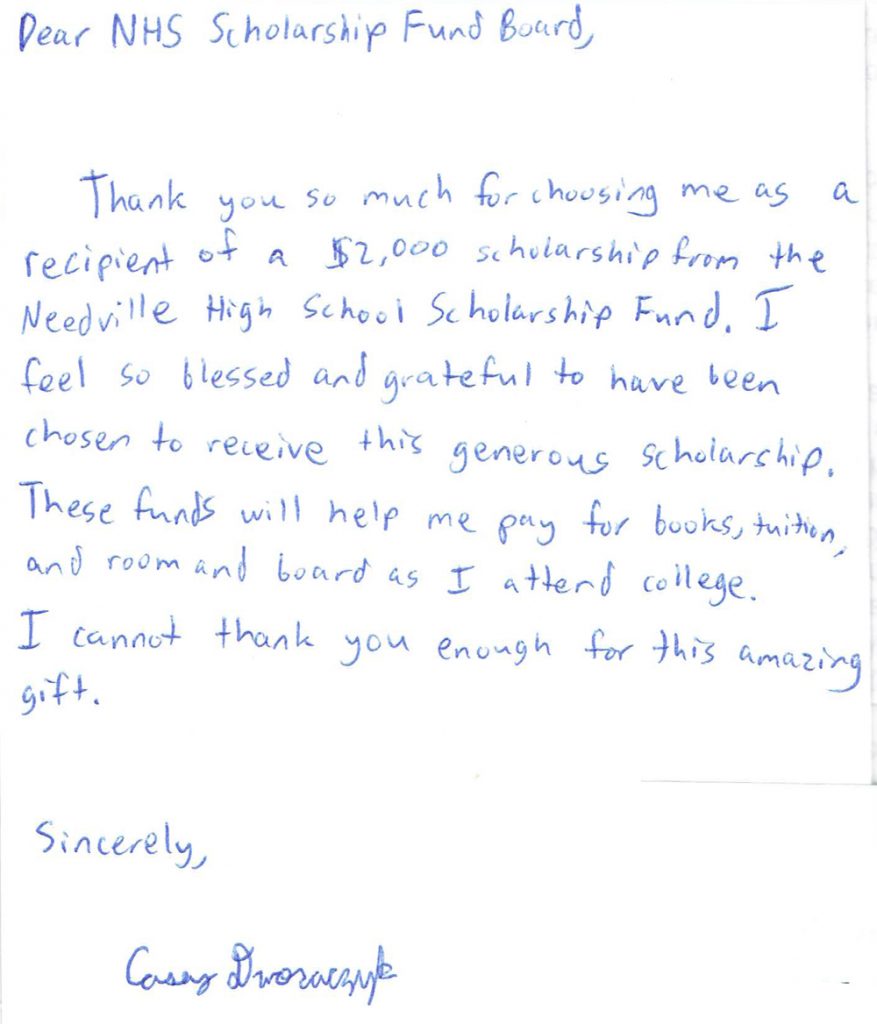 Dear NHS Scholarship Fund Board,
Thank you so much for choosing me as a
recipient of a $2,000 scholarship from the
Needville High School Scholarship Fund. I
feel so blessed and grateful to have been
chosen to receive this generous scholarship.
These funds will help me pay for books, tuition,
and room and board as I attend college.
I cannot thank you enough for this amazing
gift.
Sincerely,
Casey Dworaczyk